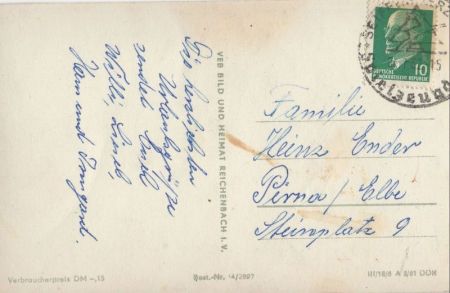 Die herzlichsten
Urlaubsgrüße
senden Euch
Willi, Liesel,
Hans und Irmgard.
VEB BILD UND HEIMAT REICHENBACH I. V.
DEUTSCHE
DEMOKRATISCHE REPUBLIK
10
Familie
Heinz Ender
Pirna/Elbe
Steinplatz 9
Verbraucherpreis DM -,15
Best.-Nr. 14/2897
A 2/61 DDR